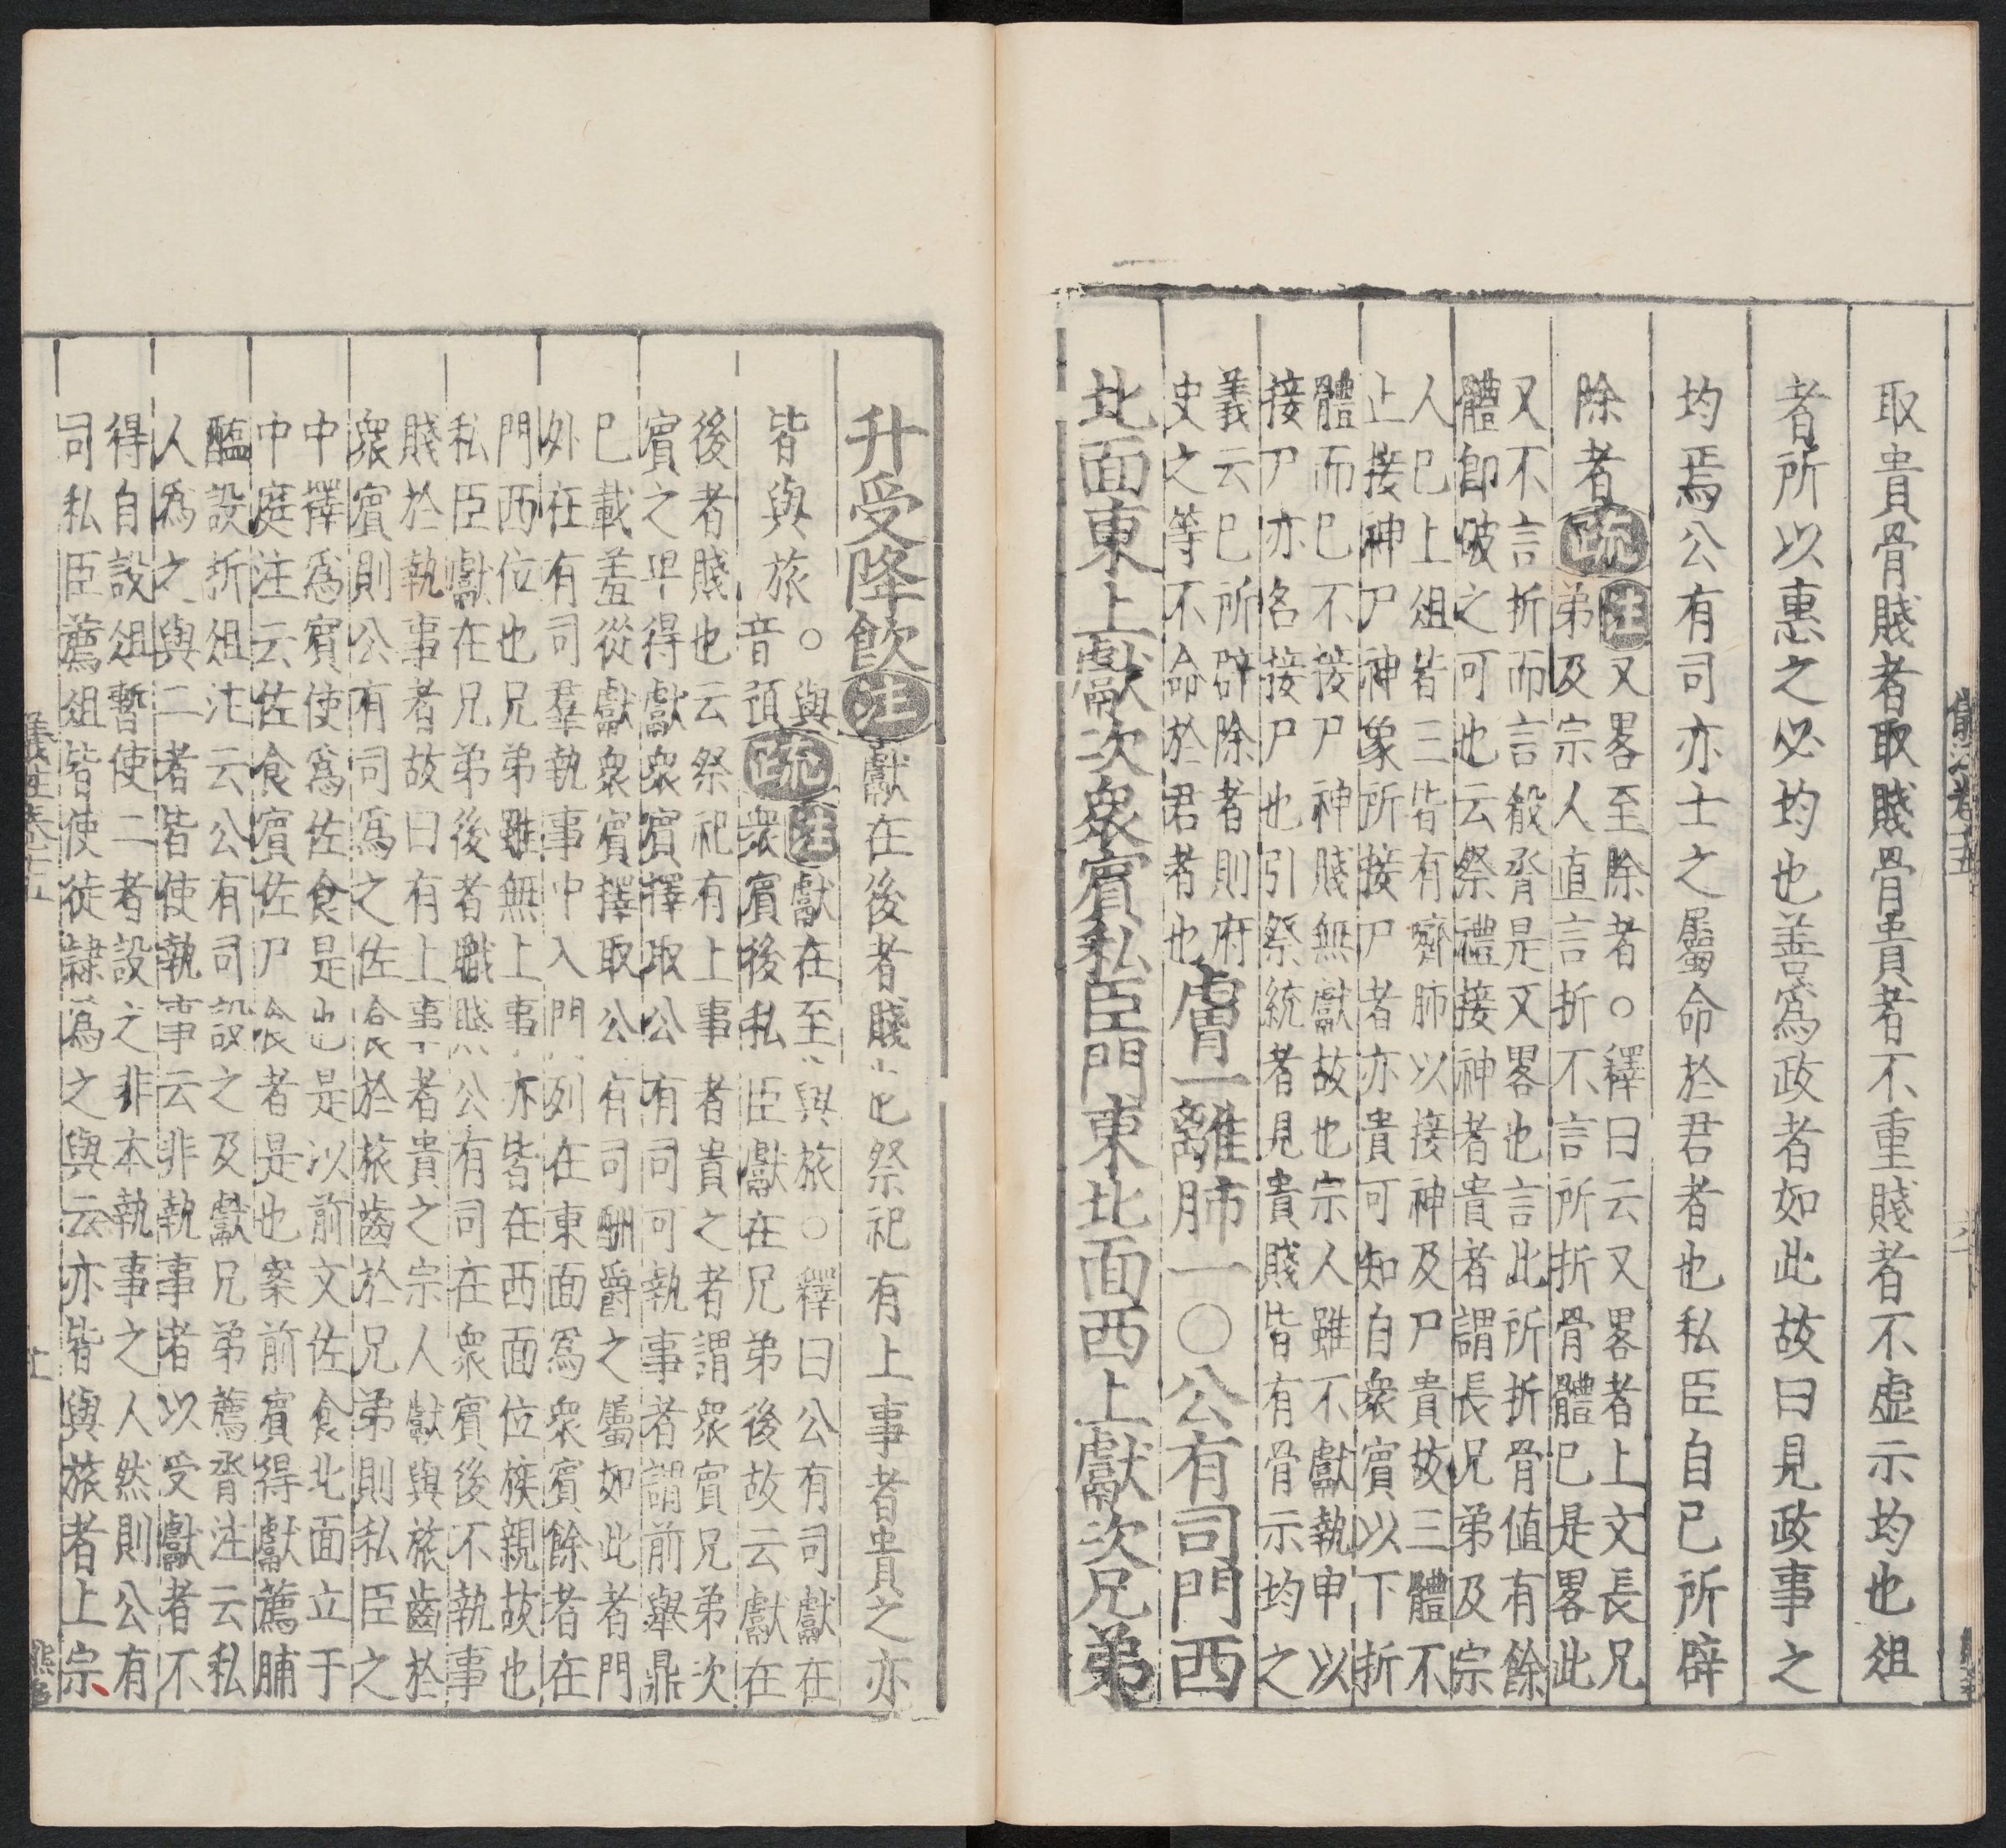 取貴骨賤者取賤骨貴者不重賤者不虛示均也俎
者所以惠之必均也善爲政者如此故曰見政事之
均焉公有司亦士之屬命於君者也私臣自己所辟
除者疏注又畧至除者○釋曰云又畧者上文長兄
弟及宗人直言折不言所折骨體已是畧此
又不言折而言殽脀是又畧也言此所折骨值有餘
體卽破之可也云祭禮接神者貴者謂長兄弟及宗
人已上俎皆三皆有嚌肺以接神及尸貴故三體不
止接神尸神象所接尸者亦貴可知自衆賓以下折
體而已不接尸神賤無獻故也宗人雖不獻執申以
接尸亦名接尸也引祭統者見貴賤皆有骨示均之
義云已所辟除者則府
史之等不命於君者也膚一離肺一○公有司門西
北面東上獻次衆賓私臣門東北面西上獻次兄弟
升受降飲注獻在後者賤也祭祀有上事者貴之亦
皆與旅○與
音預疏注獻在至與旅○釋曰公有司獻在
衆賓後私臣獻在兄弟後故云獻在
後者賤也云祭祀有上事者貴之者謂衆賓兄弟次
賓之卑得獻衆賓擇取公有司可執事者謂前舉鼎
已載羞從獻衆賓擇取公有司酬爵之屬如此者門
外在有司羣執事中入門列在東面爲衆賓餘者在
門西位也兄弟雖無上事亦皆在西面位族親故也
私臣獻在兄弟後者職賤公有司在衆賓後不執事
賤於執事者故曰有上事者貴之宗人獻與旅齒於
衆賓則公有司爲之佐食於旅齒於兄弟則私臣之
中擇爲賓使爲佐食是也是以前文佐食北面立于
中庭注云佐食賓佐尸食者是也案前賓得獻薦脯
醢設折俎注云公有司設之及獻兄弟薦脀注云私
人爲之與二者皆使執事云非執事者以受獻者不
得自設俎暫使二者設之非本執事之人然則公有
司私臣薦俎皆使徒隷爲之與云亦皆與旅者上宗